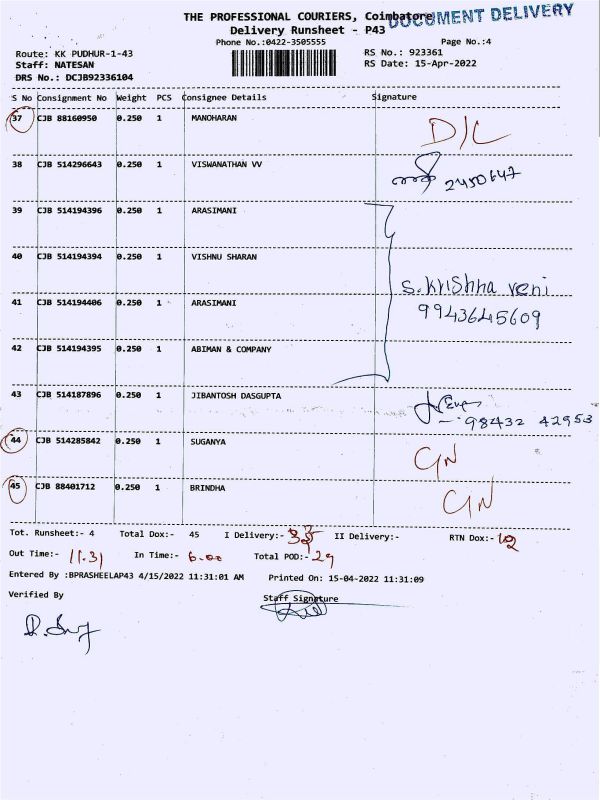 THE PROFESSIONAL COURIERS, Coimbatore
DOCUMENT DELIVERY
Delivery Runsheet - P43
Phone No.:0422-3505555 Page No.:4
Route: KK PUDHUR-1-43 RS No.: 923361
Staff: NATESAN RS Date: 15-Apr-2022
DRS No.: DCJB92336104
S No Consignment No Weight PCS Consignee Details Signature
37 CJB 88160950 0.250 1 MANOHARAN D/L
38 CJB 514296643 0.250 1 VISWANATHAN VV 2450647
39 CJB 514194396 0.250 1 ARASIMANI
40 CJB 514194394 0.250 1 VISHNU SHARAN
S. Krishna veni
41 CJB 514194406 0.250 1 ARASIMANI
9943645609
42 CJB 514194395 0.250 1 ABIMAN & COMPANY
43 CJB 514187896 0.250 1 JIBANTOSH DASGUPTA
98432 42953
44 CJB 514285842 0.250 1 SUGANYA
45 CJB 88401712 0.250 1 BRINDHA
Tot. Runsheet:- 4 Total Dox:- 45 I Delivery:- II Delivery:- RTN Dox:-
Out Time:- 11.31 In Time:- 6.00 Total POD:- 29
Entered By :BPRASHEELAP43 4/15/2022 11:31:01 AM Printed On: 15-04-2022 11:31:09
Verified By Staff Signature